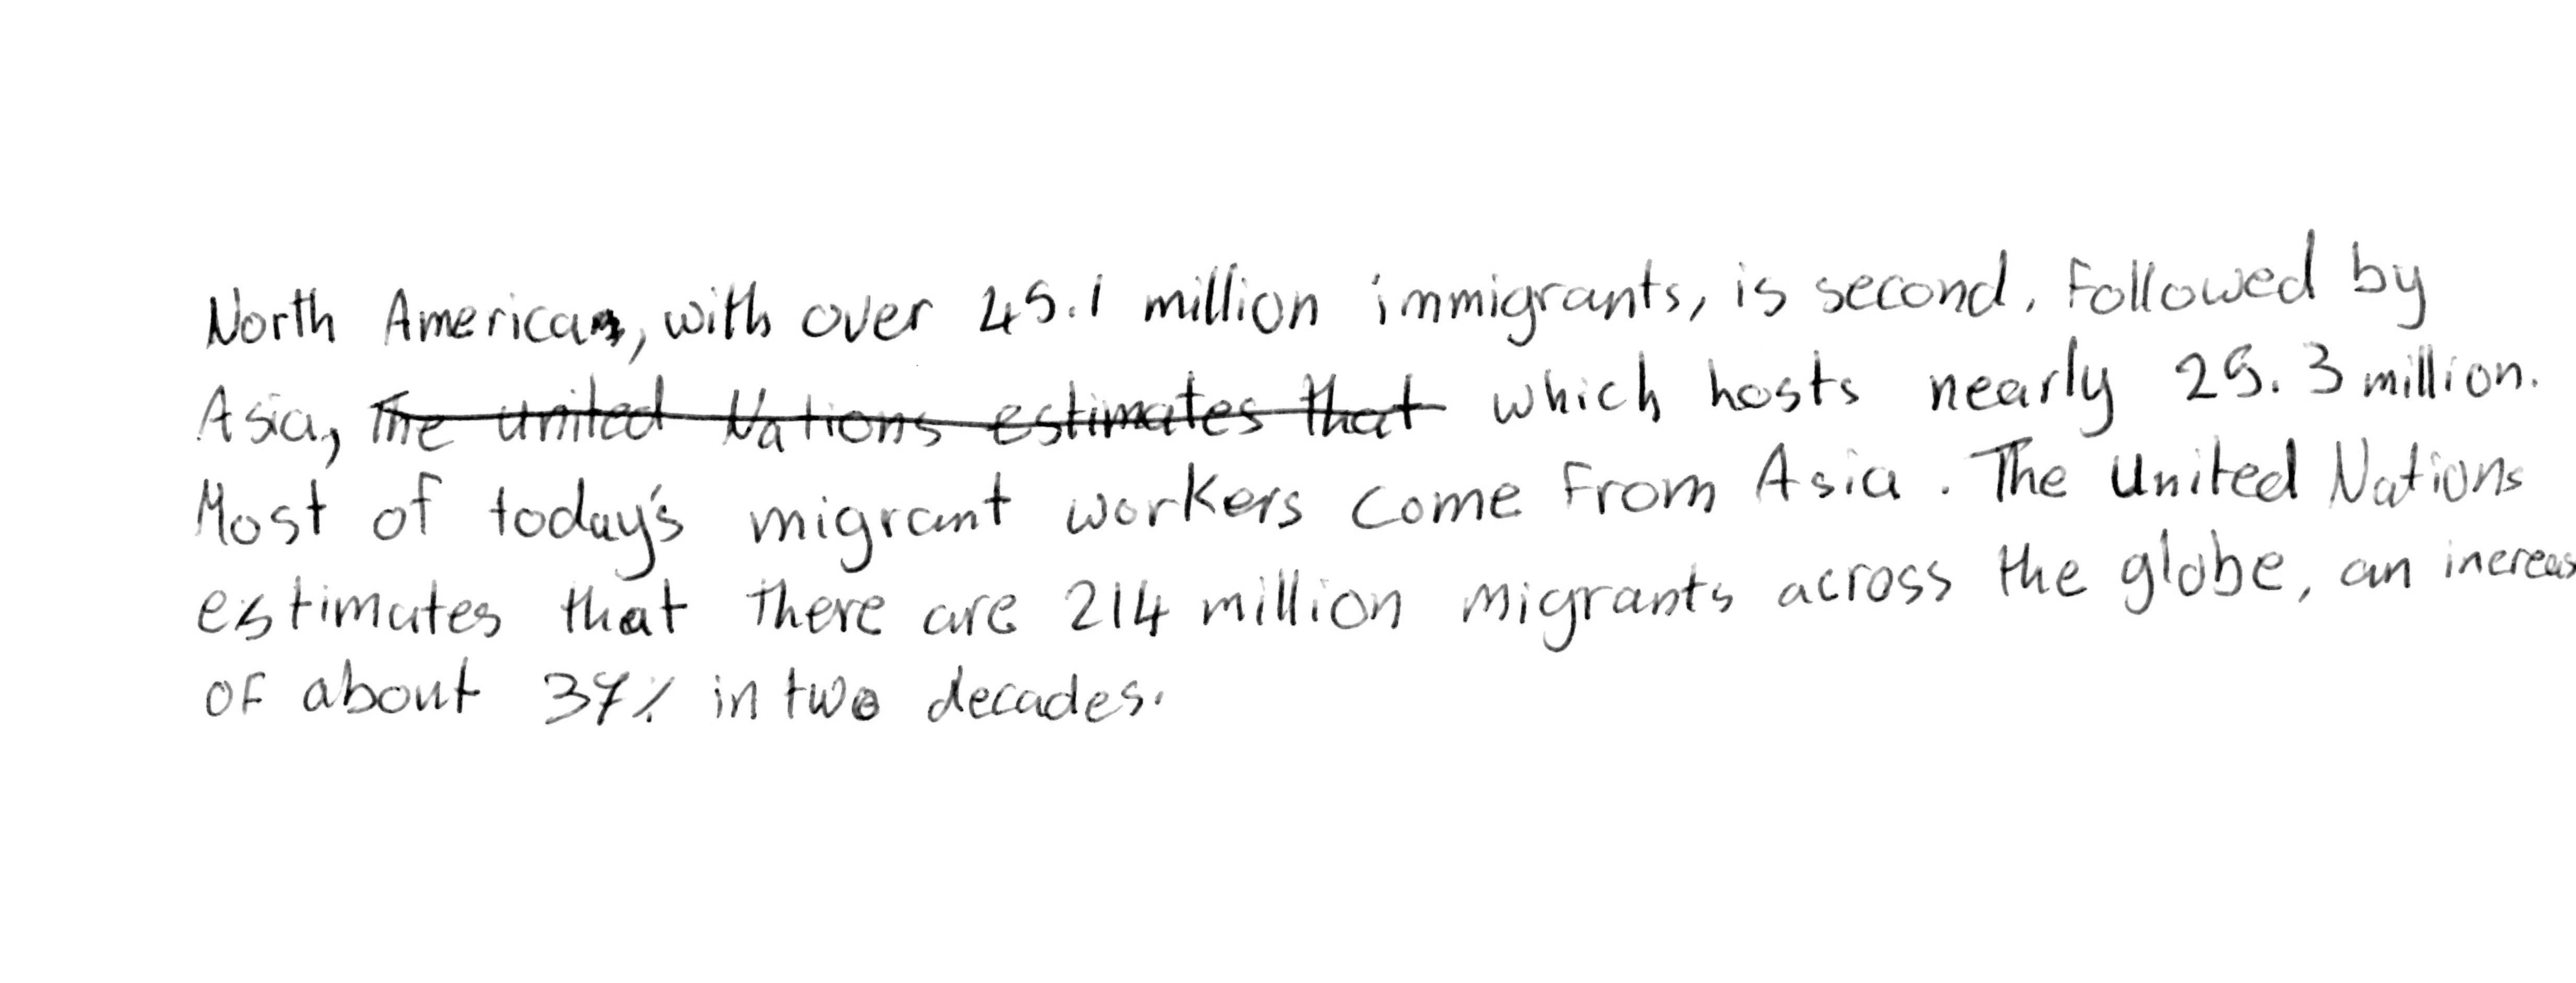 North America, with over 45.1 million immigrants, is second, followed by
Asia, ~~The united Nations estimates that~~ which hosts nearly 25.3 million.
Most of today's migrant workers come from Asia. The United Nations
estimates that there are 214 million migrants across the globe, an increas
of about 37% in two decades.